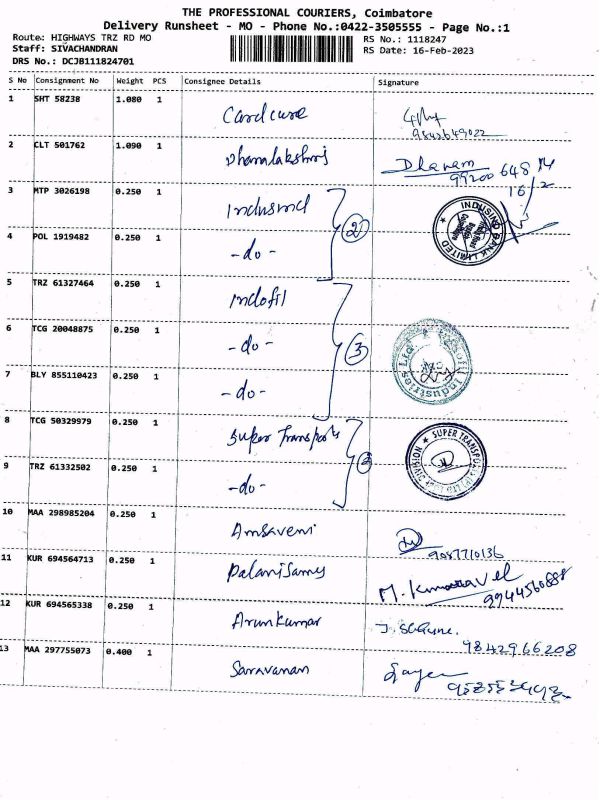 THE PROFESSIONAL COURIERS, Coimbatore
Delivery Runsheet - MO - Phone No.:0422-3505555 - Page No.:1
Route: HIGHWAYS TRZ RD MO
RS No.: 1118247
Staff: SIVACHANDRAN
RS Date: 16-Feb-2023
DRS No.: DCJB111824701
S No Consignment No Weight PCS Consignee Details Signature
1 SHT 58238 1.080 1 Cardcure
9843649022
2 CLT 501762 1.090 1 Dhanalakshmi Dhanam
99200 648
16/2
3 MTP 3026198 0.250 1 Indusind INDUSIND BANK LIMITED
2
4 POL 1919482 0.250 1 -do-
5 TRZ 61327464 0.250 1 Indofil
6 TCG 20048875 0.250 1 -do- Indofil Industries Ltd
3
7 BLY 855110423 0.250 1 -do-
8 TCG 50329979 0.250 1 Super Transports SUPER TRANSPORTS (P) LTD DIVISION
9 TRZ 61332502 0.250 1 -do-
10 MAA 298985204 0.250 1 Amsaveni
9087710136
11 KUR 694564713 0.250 1 Palanisamy M. Kumaravel
9944560888
12 KUR 694565338 0.250 1 Arunkumar
9842966208
13 MAA 297755073 0.400 1 Saravanan